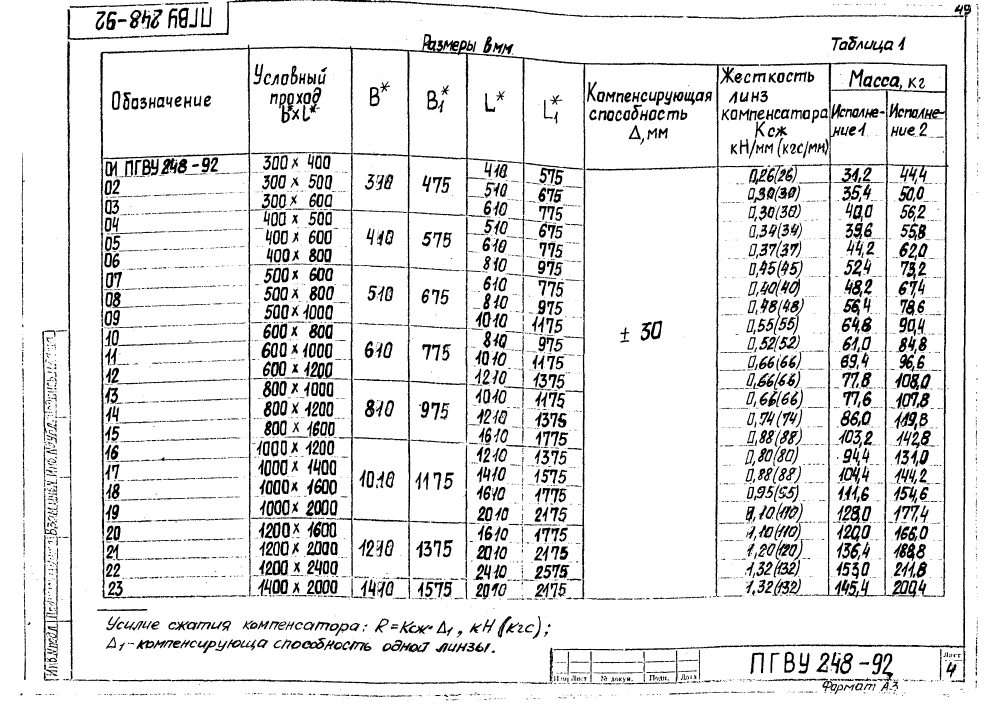 ПГВУ 248-92
49
Размеры в мм
Таблица 1
Обозначение | Условный проход b*xL* | B* | B₁* | L* | L₁* | Компенсирующая способность Δ, мм | Жесткость линз компенсатора Ксж кН/мм (кгс/мм) | Масса, кг Исполнение 1 | Исполнение 2
01 ПГВУ 248-92 | 300 x 400 | 310 | 475 | 410 | 575 | ± 30 | 0,26(26) | 31,2 | 44,4
02 | 300 x 500 | 510 | 675 | 0,30(30) | 35,4 | 50,0
03 | 300 x 600 | 610 | 775 | 0,30(30) | 40,0 | 56,2
04 | 400 x 500 | 410 | 575 | 510 | 675 | 0,34(34) | 39,6 | 55,8
05 | 400 x 600 | 610 | 775 | 0,37(37) | 44,2 | 62,0
06 | 400 x 800 | 810 | 975 | 0,45(45) | 52,4 | 73,2
07 | 500 x 600 | 510 | 675 | 610 | 775 | 0,40(40) | 48,2 | 67,4
08 | 500 x 800 | 810 | 975 | 0,48(48) | 56,4 | 78,6
09 | 500 x 1000 | 1010 | 1175 | 0,55(55) | 64,8 | 90,4
10 | 600 x 800 | 610 | 775 | 810 | 975 | 0,52(52) | 61,0 | 84,8
11 | 600 x 1000 | 1010 | 1175 | 0,66(66) | 69,4 | 96,6
12 | 600 x 1200 | 1210 | 1375 | 0,66(66) | 77,8 | 108,0
13 | 800 x 1000 | 810 | 975 | 1010 | 1175 | 0,66(66) | 77,6 | 107,8
14 | 800 x 1200 | 1210 | 1375 | 0,74(74) | 86,0 | 119,8
15 | 800 x 1600 | 1610 | 1775 | 0,88(88) | 103,2 | 142,8
16 | 1000 x 1200 | 1010 | 1175 | 1210 | 1375 | 0,80(80) | 94,4 | 131,0
17 | 1000 x 1400 | 1410 | 1575 | 0,88(88) | 104,4 | 144,2
18 | 1000 x 1600 | 1610 | 1775 | 0,95(55) | 111,6 | 154,6
19 | 1000 x 2000 | 2010 | 2175 | 1,10(110) | 128,0 | 177,4
20 | 1200 x 1600 | 1210 | 1375 | 1610 | 1775 | 1,10(110) | 120,0 | 166,0
21 | 1200 x 2000 | 2010 | 2175 | 1,20(120) | 136,4 | 188,8
22 | 1200 x 2400 | 2410 | 2575 | 1,32(132) | 153,0 | 211,8
23 | 1400 x 2000 | 1410 | 1575 | 2010 | 2175 | 1,32(132) | 145,4 | 200,4
Усилие сжатия компенсатора: R=Ксж·Δ₁, кН (кгс);
Δ₁-компенсирующа способность одной линзы.
Изм Лист № докум. Подп. Дата
ПГВУ 248-92
Лист
4
Формат А3